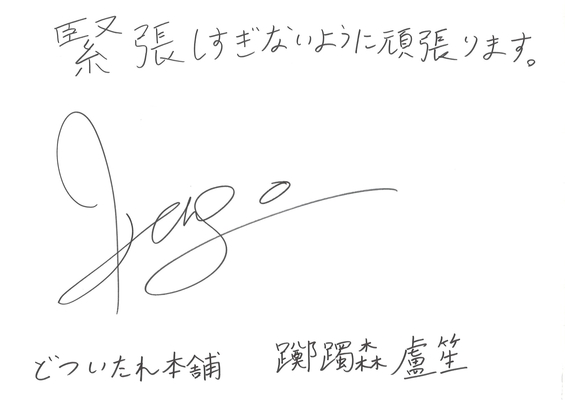 緊張しすぎないように頑張ります。
どついたれ本舗 躑躅森 盧笙